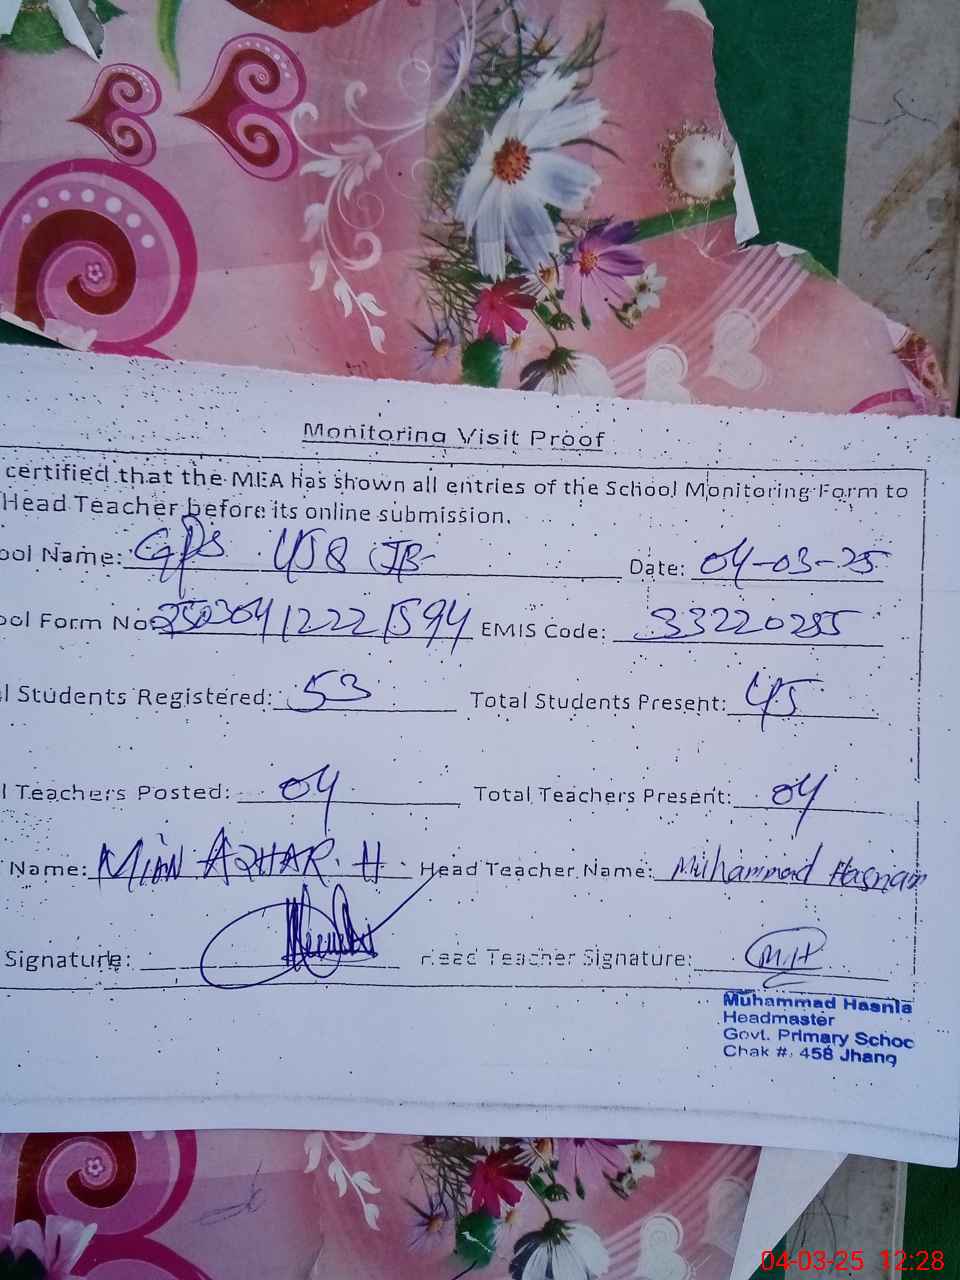 Monitoring Visit Proof
certified that the MEA has shown all entries of the School Monitoring Form to
Head Teacher before its online submission.
ool Name: GPS 458 JB Date: 04-03-25
ool Form No: 25030412221594 EMIS Code: 33220285
l Students Registered: 53 Total Students Present: 45
l Teachers Posted: 04 Total Teachers Present: 04
Name: MIAN AZHAR. H Head Teacher Name: Muhammad Hasnain
Signature: Head Teacher Signature: M.H
Muhammad Hasnia
Headmaster
Govt. Primary Schoo
Chak #. 458 Jhang
04-03-25 12:28